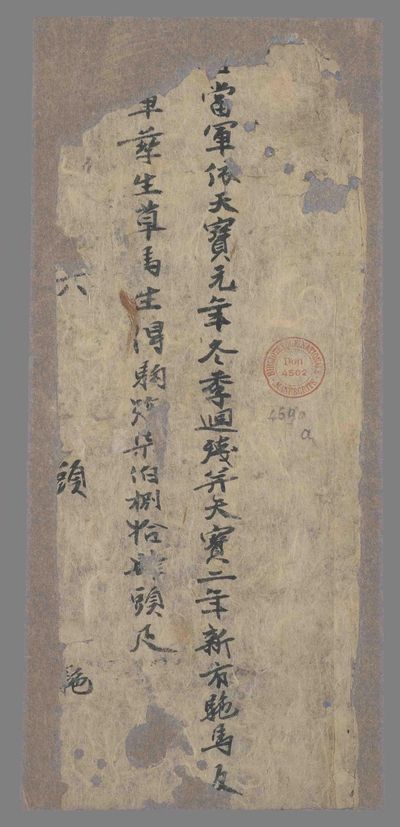 當軍依天寶元年冬季迴殘并天寶二年新市駞馬及
孳生草馬生得駒總柒伯捌拾肆頭疋
六 頭 駞
BIBLIOTHÈQUE NATIONALE
Don
4502
MANUSCRITS
a